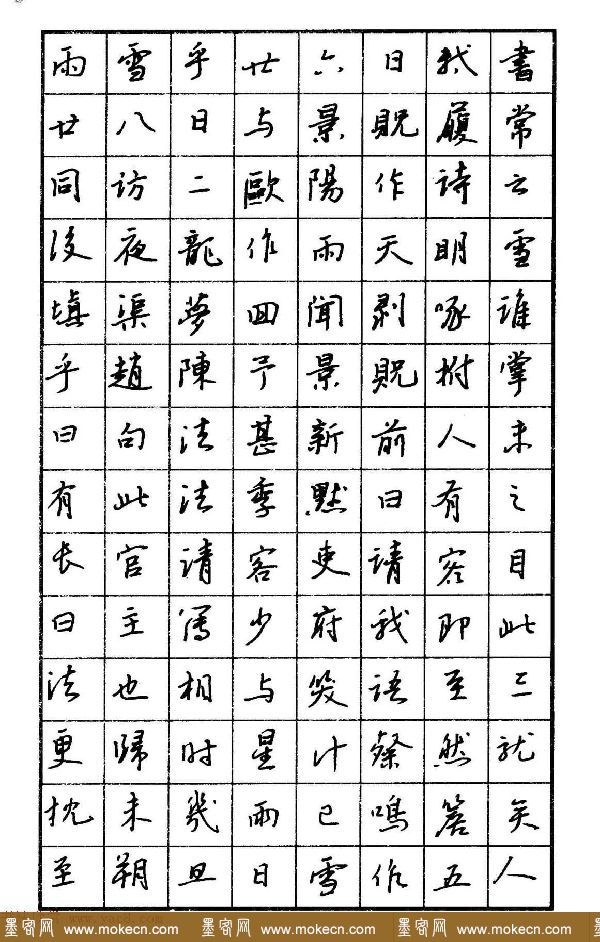 雨雪乎廿六日我書
廿八日与景貺履常
同访二歐陽作詩云
後夜龍作雨天明雪
填渠夢回聞剥啄誰
乎趙陳予景貺拊掌
曰句法甚新前人未
有此法季默曰有之
长官請客吏請客目
曰主簿少府我即此
法也相与笑語至三
更歸时星斗粲然就
枕未幾雨已鳴簷矣
至朔旦日雪作五人
墨客网 www.mokecn.com 墨客网 www.mokecn.com 墨客网 www.mokecn.com